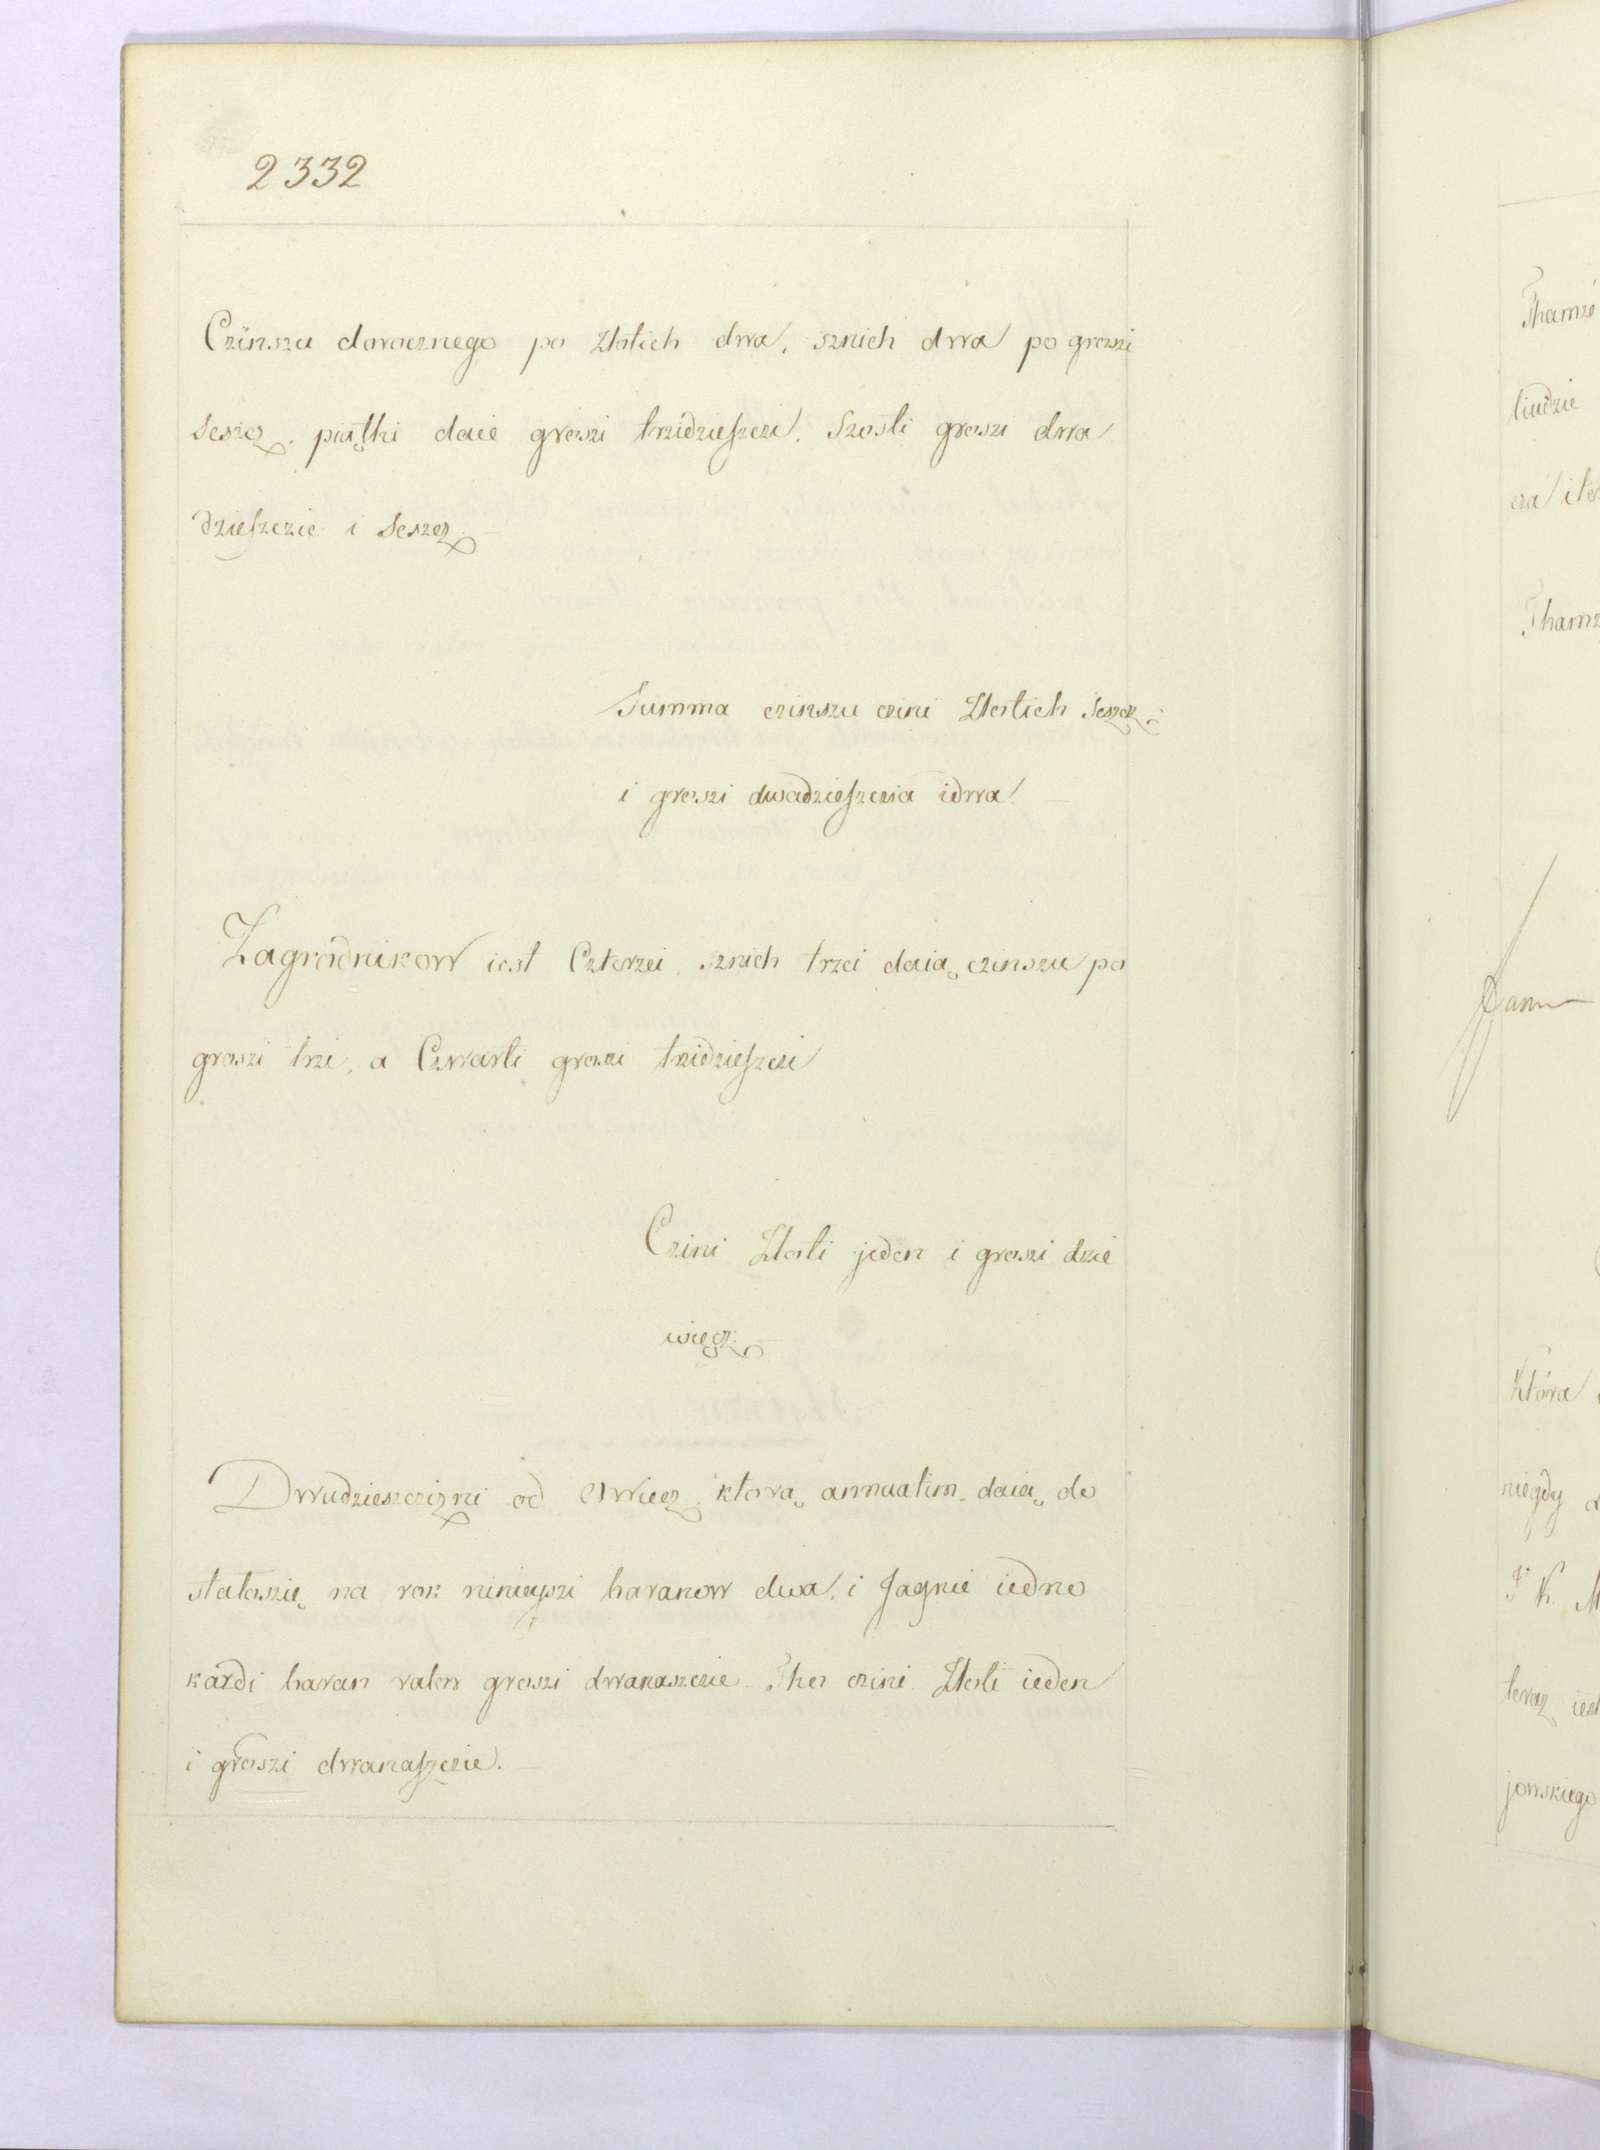 2332
Czinszu dorocznego po złotich dwa, sznich dwa po groszi
sescz, piąthi daie groszi trzidzieszczi, Szosti groszi dwa
dzieszczie i Sescz
Summa czinszu czini Złotich Sescz
i groszi dwadzieszczia idwa
Zagrodnikow iest Cztorzei, sznich trzei daią czinszu po
groszi trzi, a Czwarti groszi trzidzieszczi
Czini Złoti jeden i groszi dzie
więcz
Dwudzieszcizni od Owiecz, ktorą annuatim daią, do
stałoszię na rok ninieyszi baranow dwa, i Jagnie iedno
kazdi baran valor groszi dwanaszczie Tho czini Złoti ieden
i groszi dwanaszczie.
Thamże
liudzie
Która
niegdy
teraz iest
jowskiego